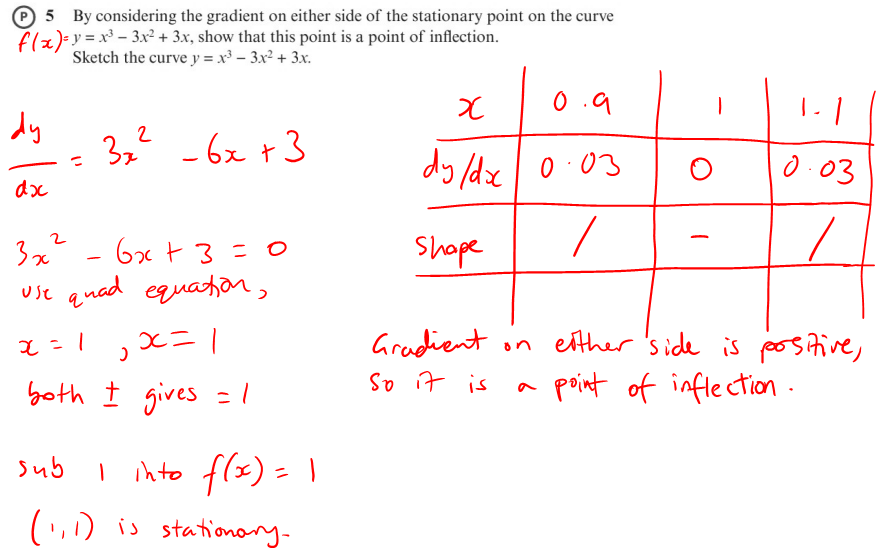 P 5 By considering the gradient on either side of the stationary point on the curve
f(x)= y = x³ – 3x² + 3x, show that this point is a point of inflection.
Sketch the curve y = x³ – 3x² + 3x.
dy/dx = 3x² - 6x + 3
3x² - 6x + 3 = 0
use quad equation,
x = 1, x = 1
both ± gives = 1
sub 1 into f(x) = 1
(1,1) is stationary.
x 0.9 1 1.1
dy/dx 0.03 0 0.03
Shape / - /
Gradient on either side is positive,
so it is a point of inflection.